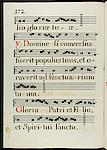 172.
lio gloriæ tuæ.
℣. Domine si conversus
fuerit populus tuus, et o-
raverit ad sanctuarium
tuum.
Gloria Patri et Filio,
et Spiritui sancto.